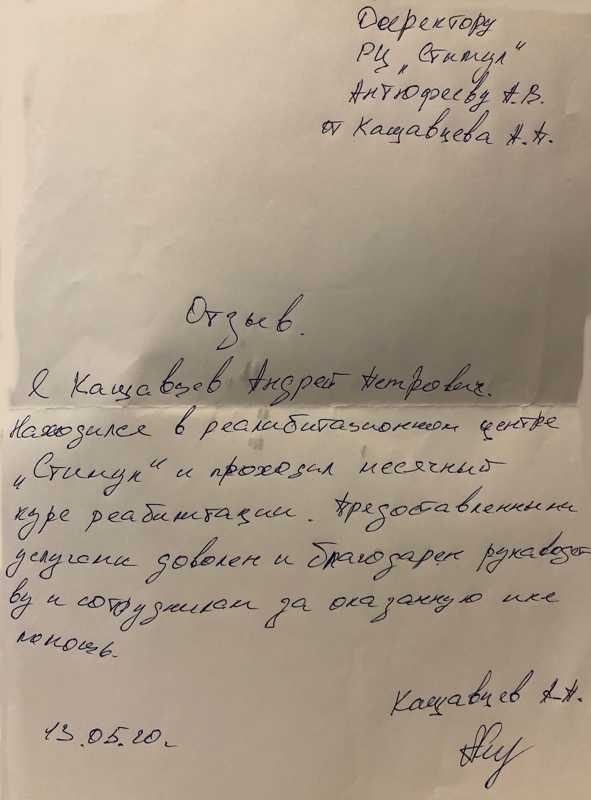 Директору
РЦ „Стимул"
Антюфееву А.В.
от Кащавцева А.П.
Отзыв.
Я Кащавцев Андрей Петрович.
Находился в реалибитационном центре
„Стимул" и проходил месячный
курс реабилитации. Предоставленными
услугами доволен и благодарен руководст
ву и сотрудникам за оказанную мне
помощь.
Кащавцев А.П.
13.05.20г.